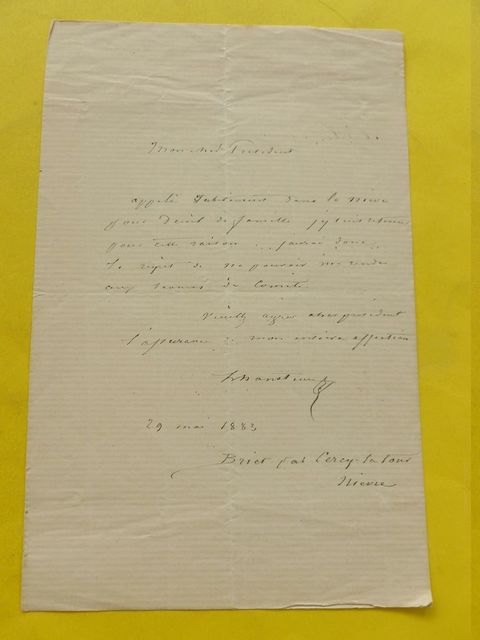 Mon cher Président
appelé subitement dans la Nièvre
pour deuil de famille j'y suis retenu
pour cette raison. j'aurai donc
le regret de ne pouvoir me rendre
aux séances du Comité.
Veuillez agréer cher président
l'assurance de mon entière affection
29 mai 1883
Briet par Cercy-la-Tour
Nièvre